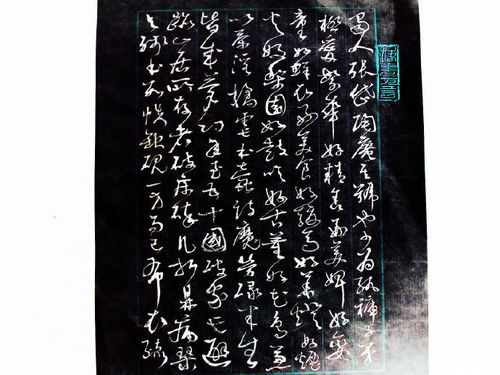 蜀人張岱陶庵其號也少為紈褲子弟
極愛繁華好精舍好美婢好孌
童好鮮衣好美食好駿馬好華燈好煙
火好梨園好鼓吹好古董好花鳥兼
以茶淫橘虐書蠹詩魔勞碌半生
皆成夢幻年至五十國破家亡避
跡山居所存者破床碎几折鼎病琴
殘書數帙缺硯一方而已布衣疏